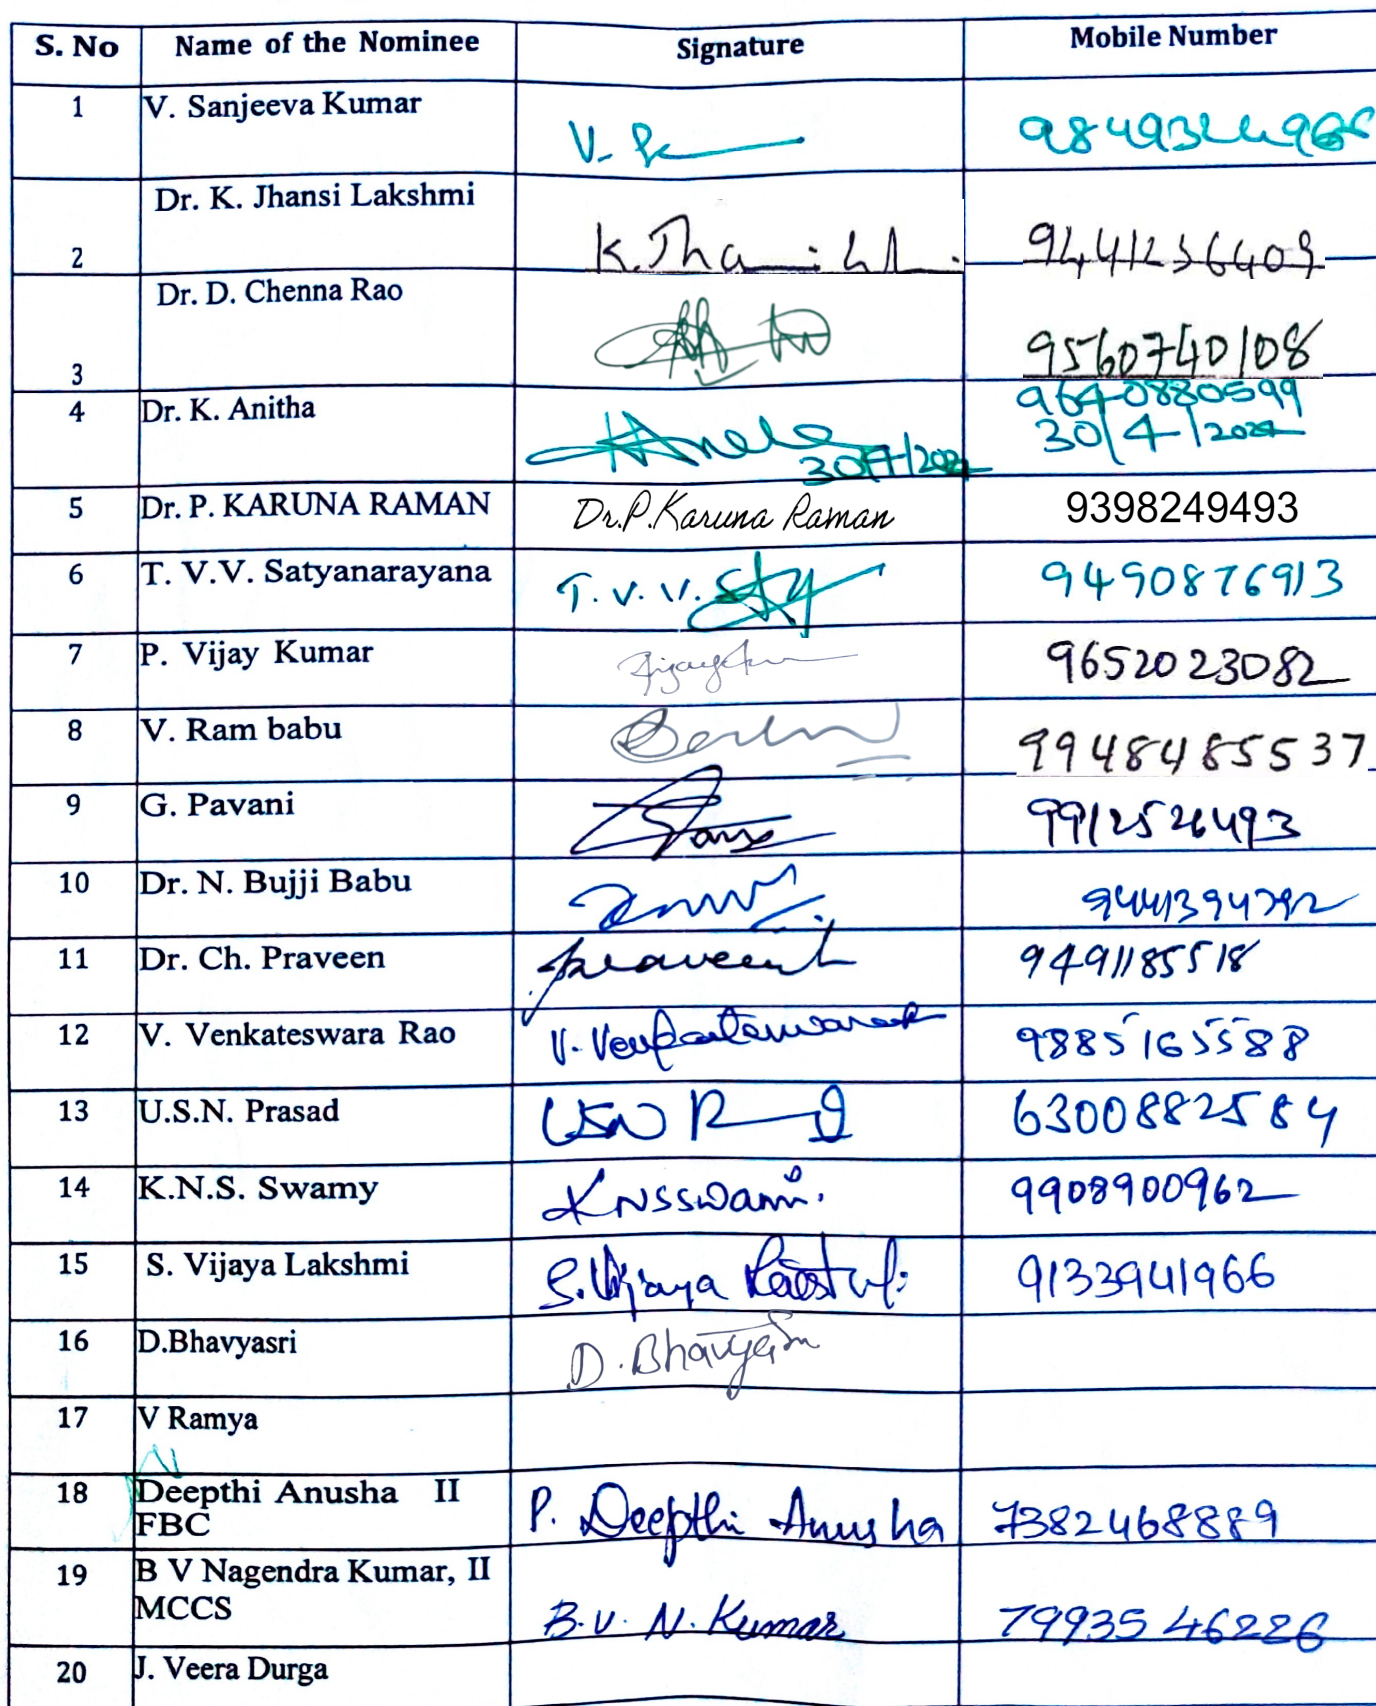 S. No Name of the Nominee Signature Mobile Number
1 V. Sanjeeva Kumar V.
2 Dr. K. Jhansi Lakshmi 9441236409
3 Dr. D. Chenna Rao 9560740108
4 Dr. K. Anitha 9640880599
30/4/2024 30/4/2024
5 Dr. P. KARUNA RAMAN Dr.P.Karuna Raman 9398249493
6 T. V.V. Satyanarayana T. V. V. 9490876913
7 P. Vijay Kumar 9652023082
8 V. Ram babu 9948485537
9 G. Pavani 9912526493
10 Dr. N. Bujji Babu 9441394792
11 Dr. Ch. Praveen 9491185518
12 V. Venkateswara Rao V. Venkateswara 9885165588
13 U.S.N. Prasad USN 6300882584
14 K.N.S. Swamy KNSSwami. 9908900962
15 S. Vijaya Lakshmi S. Vijaya 9133941966
16 D.Bhavyasri D. Bhavyasri
17 V Ramya
18 Deepthi Anusha II P. Deepthi Anusha 7382468889
FBC
19 B V Nagendra Kumar, II B.V. N. Kumar 7993546286
MCCS
20 J. Veera Durga